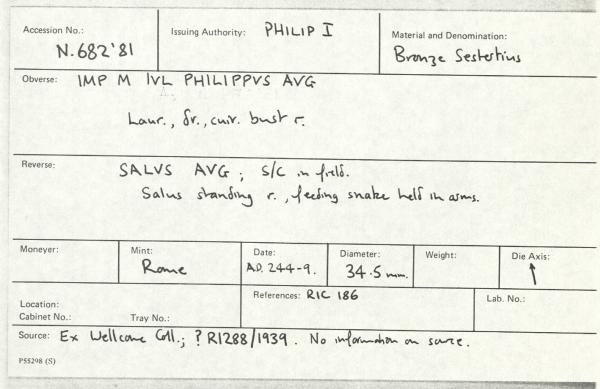 Accession No.: N.682'81
Issuing Authority: PHILIP I
Material and Denomination: Bronze Sestertius
Obverse: IMP M IVL PHILIPPVS AVG
Laur., dr., cuir. bust r.
Reverse: SALVS AVG; S/C in field.
Salus standing r., feeding snake held in arms.
Moneyer:
Mint: Rome
Date: A.D. 244-9.
Diameter: 34.5 mm.
Weight:
Die Axis: ↑
Location:
Cabinet No.: Tray No.:
References: RIC 186
Lab. No.:
Source: Ex Wellcome Coll.; ? R1288/1939. No information on source.
P55298 (S)